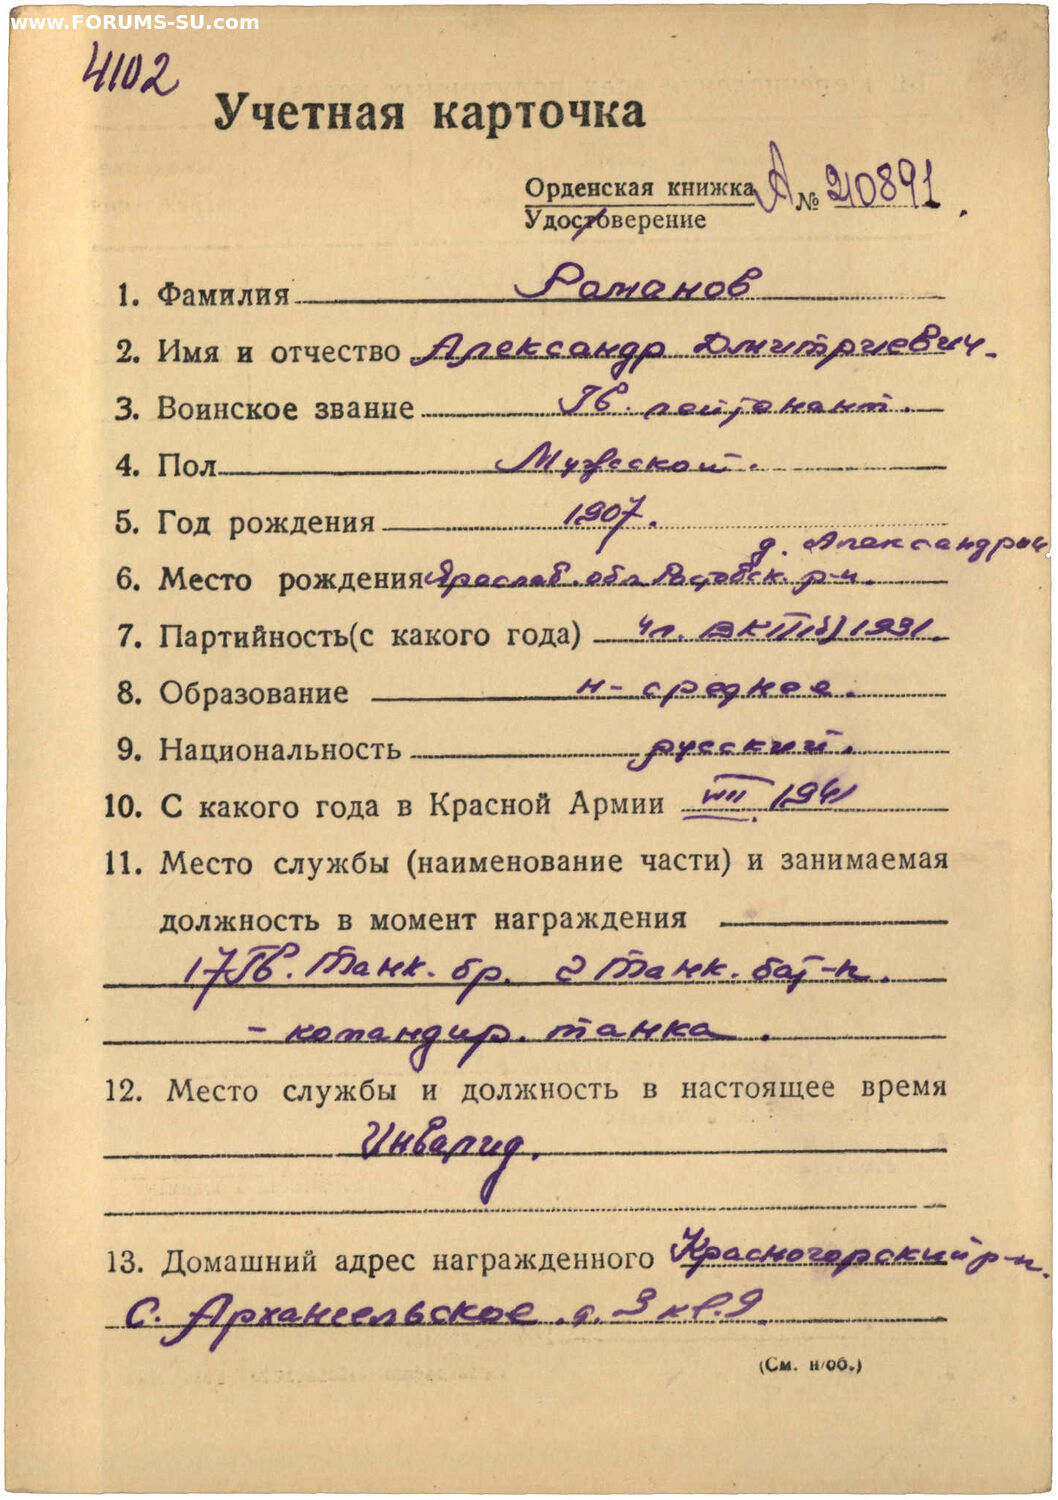 www.FORUMS-SU.com
4102
Учетная карточка
Орденская книжка А № 210891.
Удостоверение
1. Фамилия Романов
2. Имя и отчество Александр Дмитриевич.
3. Воинское звание Гв. лейтенант.
4. Пол Мужской.
5. Год рождения 1907.
д. Александрин
6. Место рождения Ярослав. обл. Ростовск. р-н.
7. Партийность(с какого года) чл. ВКП(б) 1931.
8. Образование н-среднее.
9. Национальность русский.
10. С какого года в Красной Армии VIII 1941
11. Место службы (наименование части) и занимаемая
должность в момент награждения
17 Гв. Танк. бр. 2 Танк. бат-н.
- командир. танка.
12. Место службы и должность в настоящее время
Инвалид.
13. Домашний адрес награжденного Красногорский р-н.
С. Архангельское д. 3 кв. 9.
(См. н/об.)